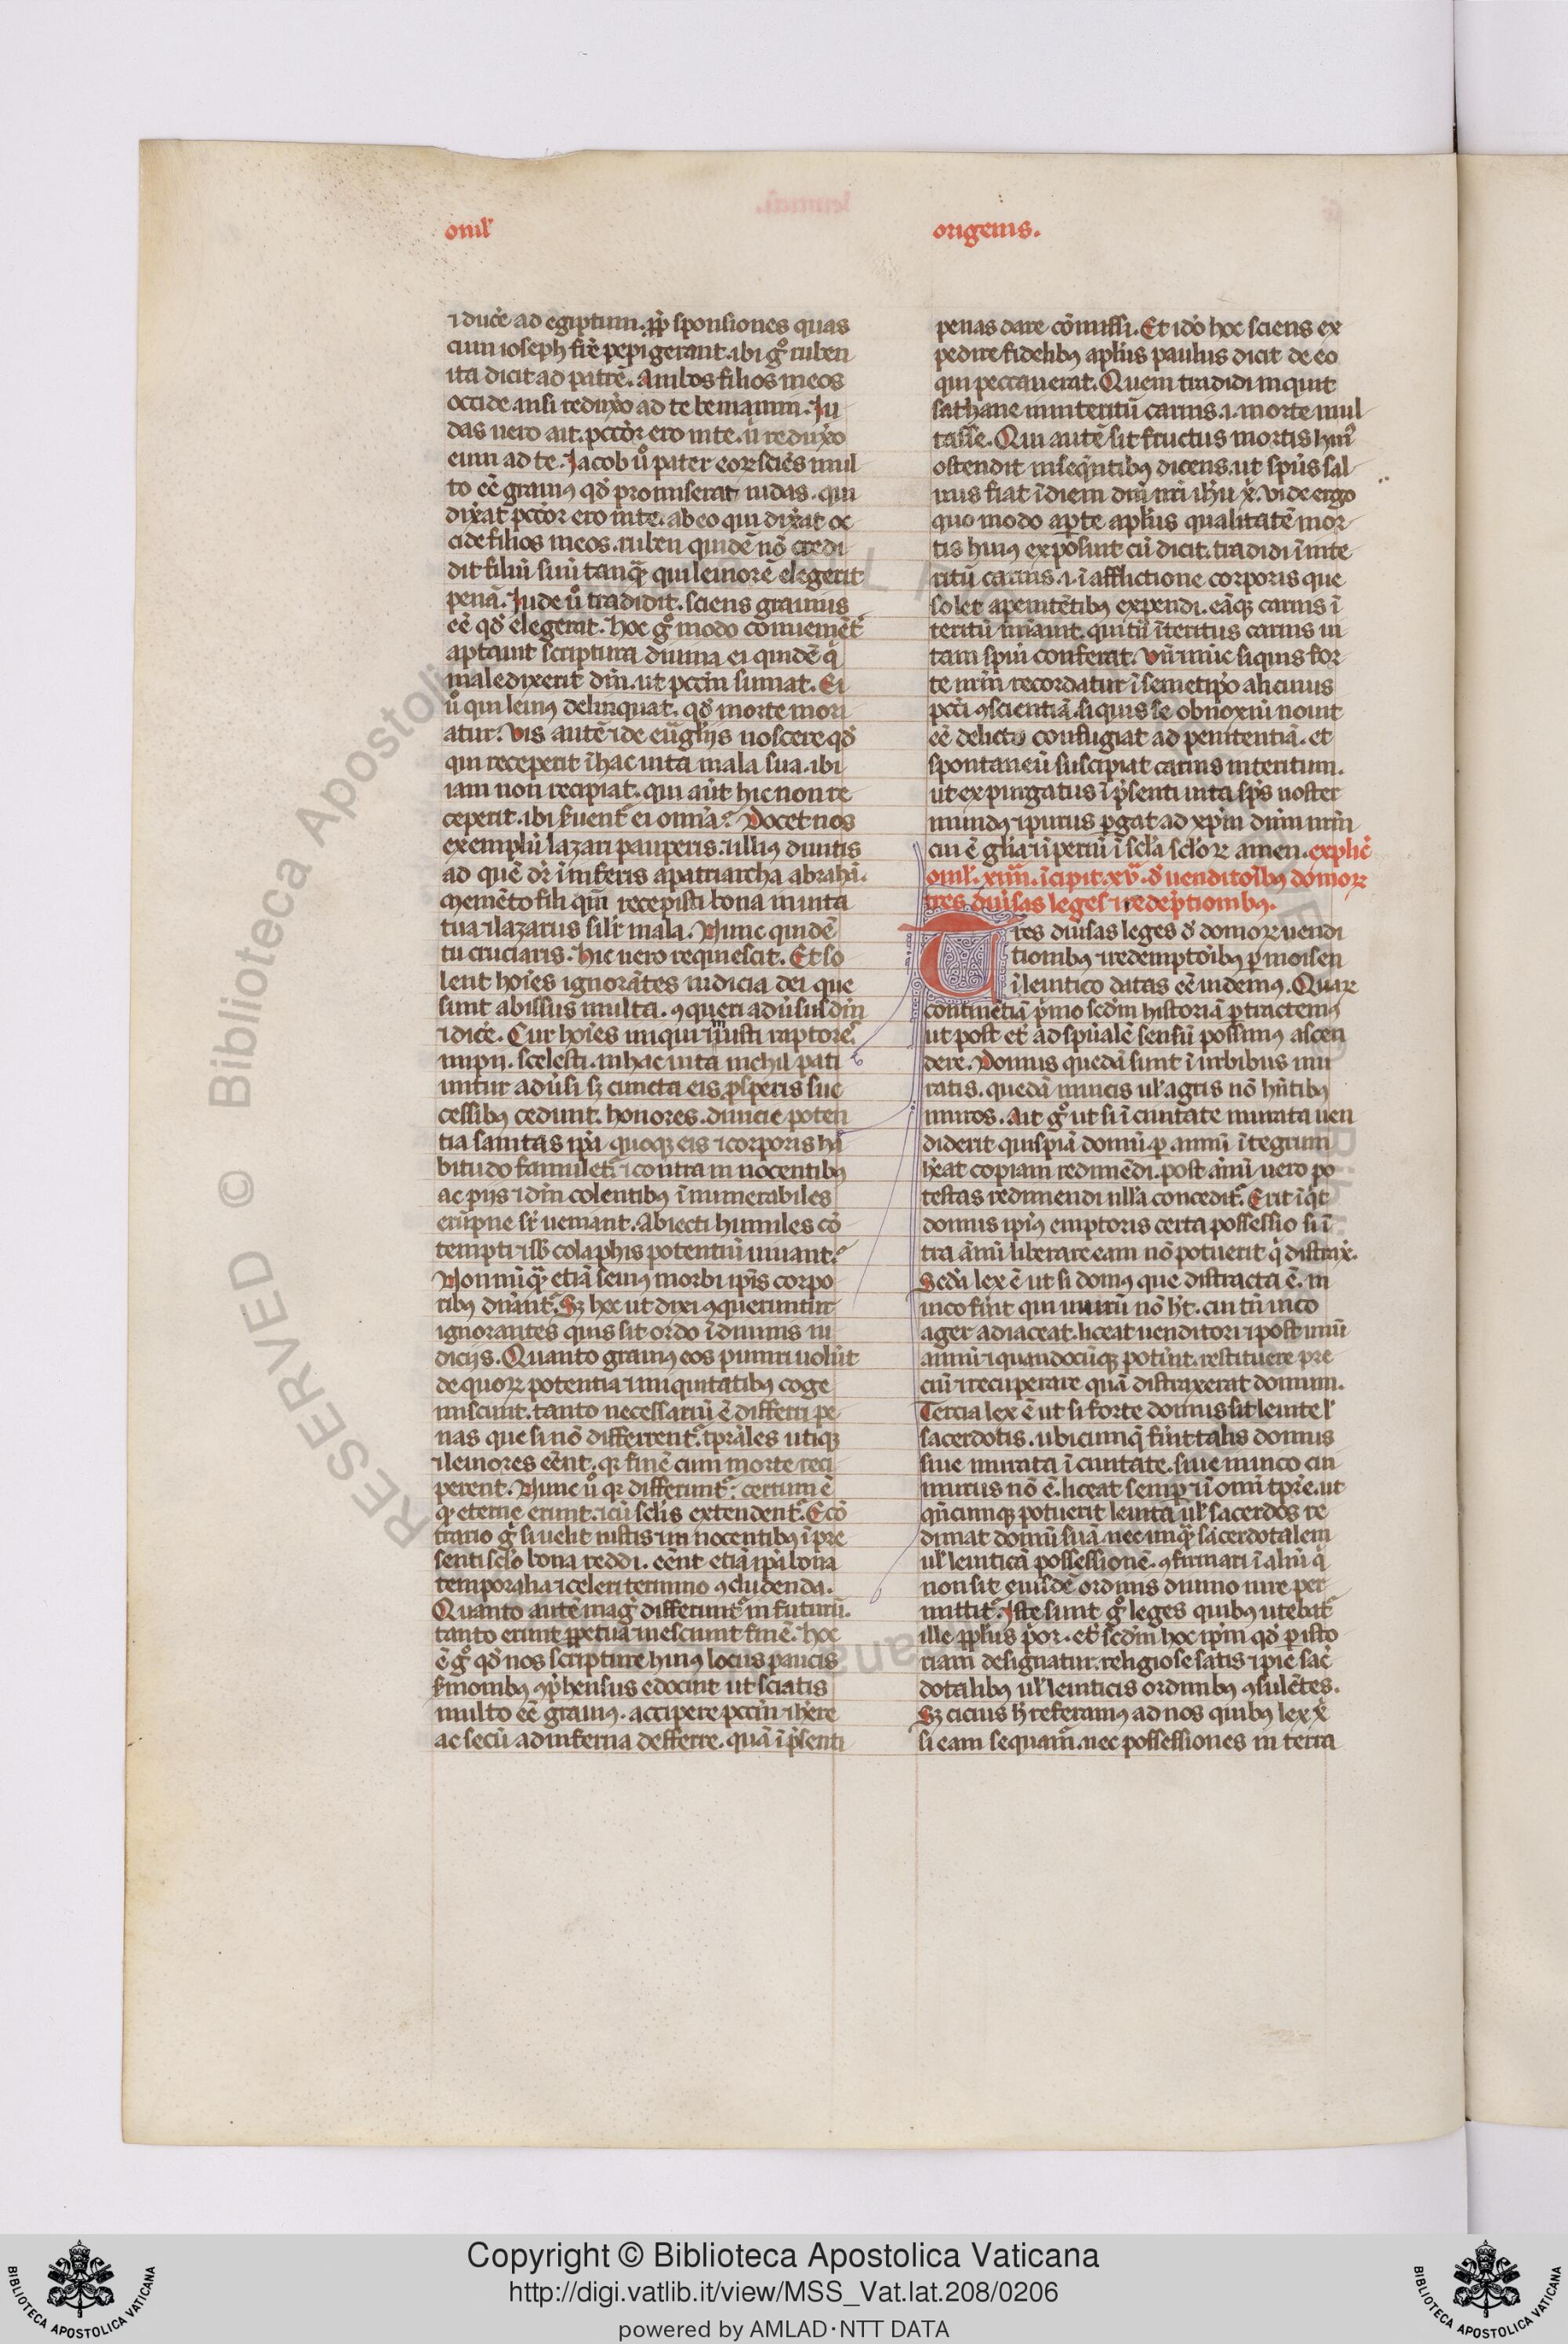 omil̕
origenis.
⁊ ducẽ ad egiptum. ꝓp̃ sponsiones quas
cum ioseph fr̃e pepigerant. ibi gͦ ruben
ita dicit ad patrẽ. Ambos filios meos
occide. nisi reduxo ad te beniamin. Iu
das uero ait. pccõr ero in te. ñ reduxo
eum ad te. Iacob uͦ pater eoꝝ sciẽs mul
to eẽ grauiꝰ qd̕ promiserat iudas. qui
dix̃at pccor ero in te. ab eo qui dix̃at oc
cide filios meos. ruben quidẽ nõ credi
dit filiũ suũ tanqᷓ qui leuiorẽ elegerit
penã. Iude uͦ tradidit. sciens grauius
eẽ qd̕ elegerat. hoc gͦ modo cõueniẽt᷑
aptauit scriptura diuina ei quidẽ q̕
maledixerit dm̃. ut pcc̃m sumat. Ei
uͦ qui leuiꝰ delinquat. qd̕ morte mori
atur. Vis autẽ ⁊ de eũgliis noscere qd̕
qui receperit ĩ hac uita mala sua. ibi
iam non recipiat. qui aũt hic non re
ceperit. ibi ẜuent᷑ ei omĩa? Docet nos
exemplũ lazari pauperis. ⁊ illiꝰ diuitis
ad quẽ dr̃ ĩ inferis a patriarcha abrahã.
Memẽto fili qm̃ recepisti bona in uita
tua ⁊ lazarus silr̃ mala. Nunc quidẽ
tu cruciaris. hic uero requiescit. Et so
lent hoĩes ignorãtes iudicia dei que
sunt abissus multa. ꝯqueri adũsus dm̃
⁊ dicẽ. Cur hoĩes iniqui iniusti raptores
impii. scelesti. in hac uita nichil pati
untur adũsi sꝫ cuncta eis ꝓsperis suc
cessibꝰ cedunt. honores. diuicie poten
tia sanitas ip̃a quoqꝫ eis ⁊ corporis ha
bitudo famulet᷑. ⁊ contra in nocentibꝰ
ac piis ⁊ dm̃ colentibꝰ ĩnumerabiles
erũpne sr̃ ueniant. Abiecti humiles cõ
tempti ⁊ sb̕ colaphis potentiũ uiuant?
Nonnũqᷓ etiã seuiꝰ morbi ip̃is corpo
ribꝰ dñant᷑. Sꝫ hec ut dixi ꝯqueruntur
ignorantes quis sit ordo ĩ diuinis iu
diciis. Quanto grauiꝰ eos puniri uolũt
de quoꝝ potentia ⁊ iniquitatibꝰ coge
miscunt. tanto necessariũ ẽ differri pe
nas que si nõ differrent᷑. tꝑales utiqꝫ
⁊ leuiores eẽnt. qꝛ finẽ cum morte reci
perent. Nunc uͦ qꝛ differunt᷑. certum ẽ
qꝛ eterne erunt. ⁊ cũ sclis extendent᷑. Ecõ
trario gͦ si uelit iustis ⁊ in nocentibꝰ ĩ pre
senti sclo bona reddi. eẽnt etiã ip̃a bona
temporalia ⁊ celeri termino ꝯcludenda.
Quanto autẽ mag̕ differunt᷑ in futurũ.
tanto erunt ꝑpetua ⁊ nescient finẽ. hoc
ẽ gͦ qd̕ nos scripture huiꝰ locus paucis
ẜmonibꝰ ꝯp̕hensus edocuit ut sciatis
multo eẽ grauiꝰ. accipere pcc̃m ⁊ hr̃e
ac secũ ad inferna defferre. quã ĩ p̕senti
penas dare cõmissi. Et idõ hoc sciens ex
pedire fidelibꝰ aplũs paulus dicit de eo
qui peccauerat. Quem tradidi inquit
sathane in interitũ carnis. i. morte mul
tasse. Qui autẽ sit fructus mortis huiꝰ
ostendit in seq̃ntibꝰ dicens. ut spũs sal
uus fiat ĩ diem dñi nr̃i ih̃u x̃. Vide ergo
quo modo aꝑte aplũs qualitatẽ mor
tis huiꝰ exposuit cũ dicit. tradidi ĩ inte
ritũ carnis. i. ĩ afflictione corporis que
solet a penitẽtibꝰ expendi. eãqꝫ carnis ĩ
teritũ nõiauit. qui tñ ĩteritus carnis ui
tam spũi conferat. Vñ nũc si quis for
te nr̃m recordatur ĩ semetip̃o alicuius
pcc̃i ꝯscientiã. si quis se obnoxiũ nouit
eẽ delicto confugiat ad penitentiã. et
spontaneũ suscipiat carnis interitum.
ut expurgatus ĩ p̕senti uita sp̃s noster
mundꝰ ⁊ purus ꝑgat ad xp̃m dñm nr̃m
cui ẽ glĩa ⁊ ĩperiũ ĩ scl̃a scl̃oꝝ amen. explic̃
omil̕. xiiii. ĩcipit. xv. d̕ uenditoĩbꝰ domoꝝ
tres diũsas leges ⁊ redẽptionibꝰ.
Tres diũsas leges d̕ domoꝝ uendi
tionibꝰ ⁊ redemptoĩbꝰ ꝑ moisen
ĩ leuitico datas eẽ uidemꝰ. Quaꝝ
continẽtiã p̕mo sc̃dm historiã ꝑtractemꝰ
ut post et̕ ad spũalẽ sensũ possimus ascen
dere. Domus quedã sunt ĩ urbibus mu
ratis. quedã in uicis ul̕ agris nõ hñtibꝰ
muros. Ait gͦ ut si ĩ ciuitate murata uen
diderit quispiã domũ ꝑ annũ ĩtegrum
hẽat copiam redimẽdi. post ãnũ uero po
testas redimendi ulla concedit᷑. Erit ĩqͥt
domus ip̃iꝰ emptoris certa possessio si ĩ
tra ãnũ liberare eam nõ potuerit q̕ distrax̃.
Scd̕a lex ẽ ut si domꝰ que distracta ẽ. in
uico fũit qui murũ nõ hꝫ. cui tñ uico
ager adiaceat. liceat uenditori ⁊ post unũ
annũ ⁊ quandocũqꝫ potũit. restituere pre
ciũ ⁊ recuperare quã distraxerat domum.
Tercia lex ẽ ut si forte domus sit leuite ul̕
sacerdotis. ubicumqꝫ fũit talis domus
siue murata ĩ ciuitate. siue in uico cui
murus nõ ẽ. liceat semꝑ ⁊ ĩ omni tꝑe. ut
qñcumqꝫ potuerit leuita ul̕ sacerdos re
dimat domũ suã. nec unqᷓ sacerdotalem
ul̕ leuiticã possessionẽ. ꝯfirmari ĩ aliũ q̕
non sit eiusdẽ ordinis diuino iure per
mittit᷑. Iste sunt gͦ leges quibꝰ utebat᷑
ille ppl̃us p̕or. et̕ sc̃dm hoc ip̃m qd̕ ꝑ isto
riam designatur. religiose satis ⁊ pie sac̃
dotalibꝰ ul̕ leuiticis ordinibꝰ ꝯsulẽtes.
Sꝫ cicius h̕ referamꝰ ad nos quibꝰ lex x̃
si eam sequam᷑. nec possessiones in terra
RESERVED © Biblioteca Apostolica
Copyright © Biblioteca Apostolica Vaticana
http://digi.vatlib.it/view/MSS_Vat.lat.208/0206
powered by AMLAD·NTT DATA
BIBLIOTECA APOSTOLICA VATICANA
BIBLIOTECA APOSTOLICA VATICANA